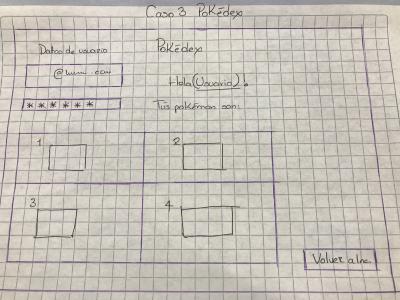 Caso 3 Pokédex
Datos de usuario
Pokédex
@
Hola (Usuario)!
******
Tus pokémon son:
1
2
3
4
Volver a